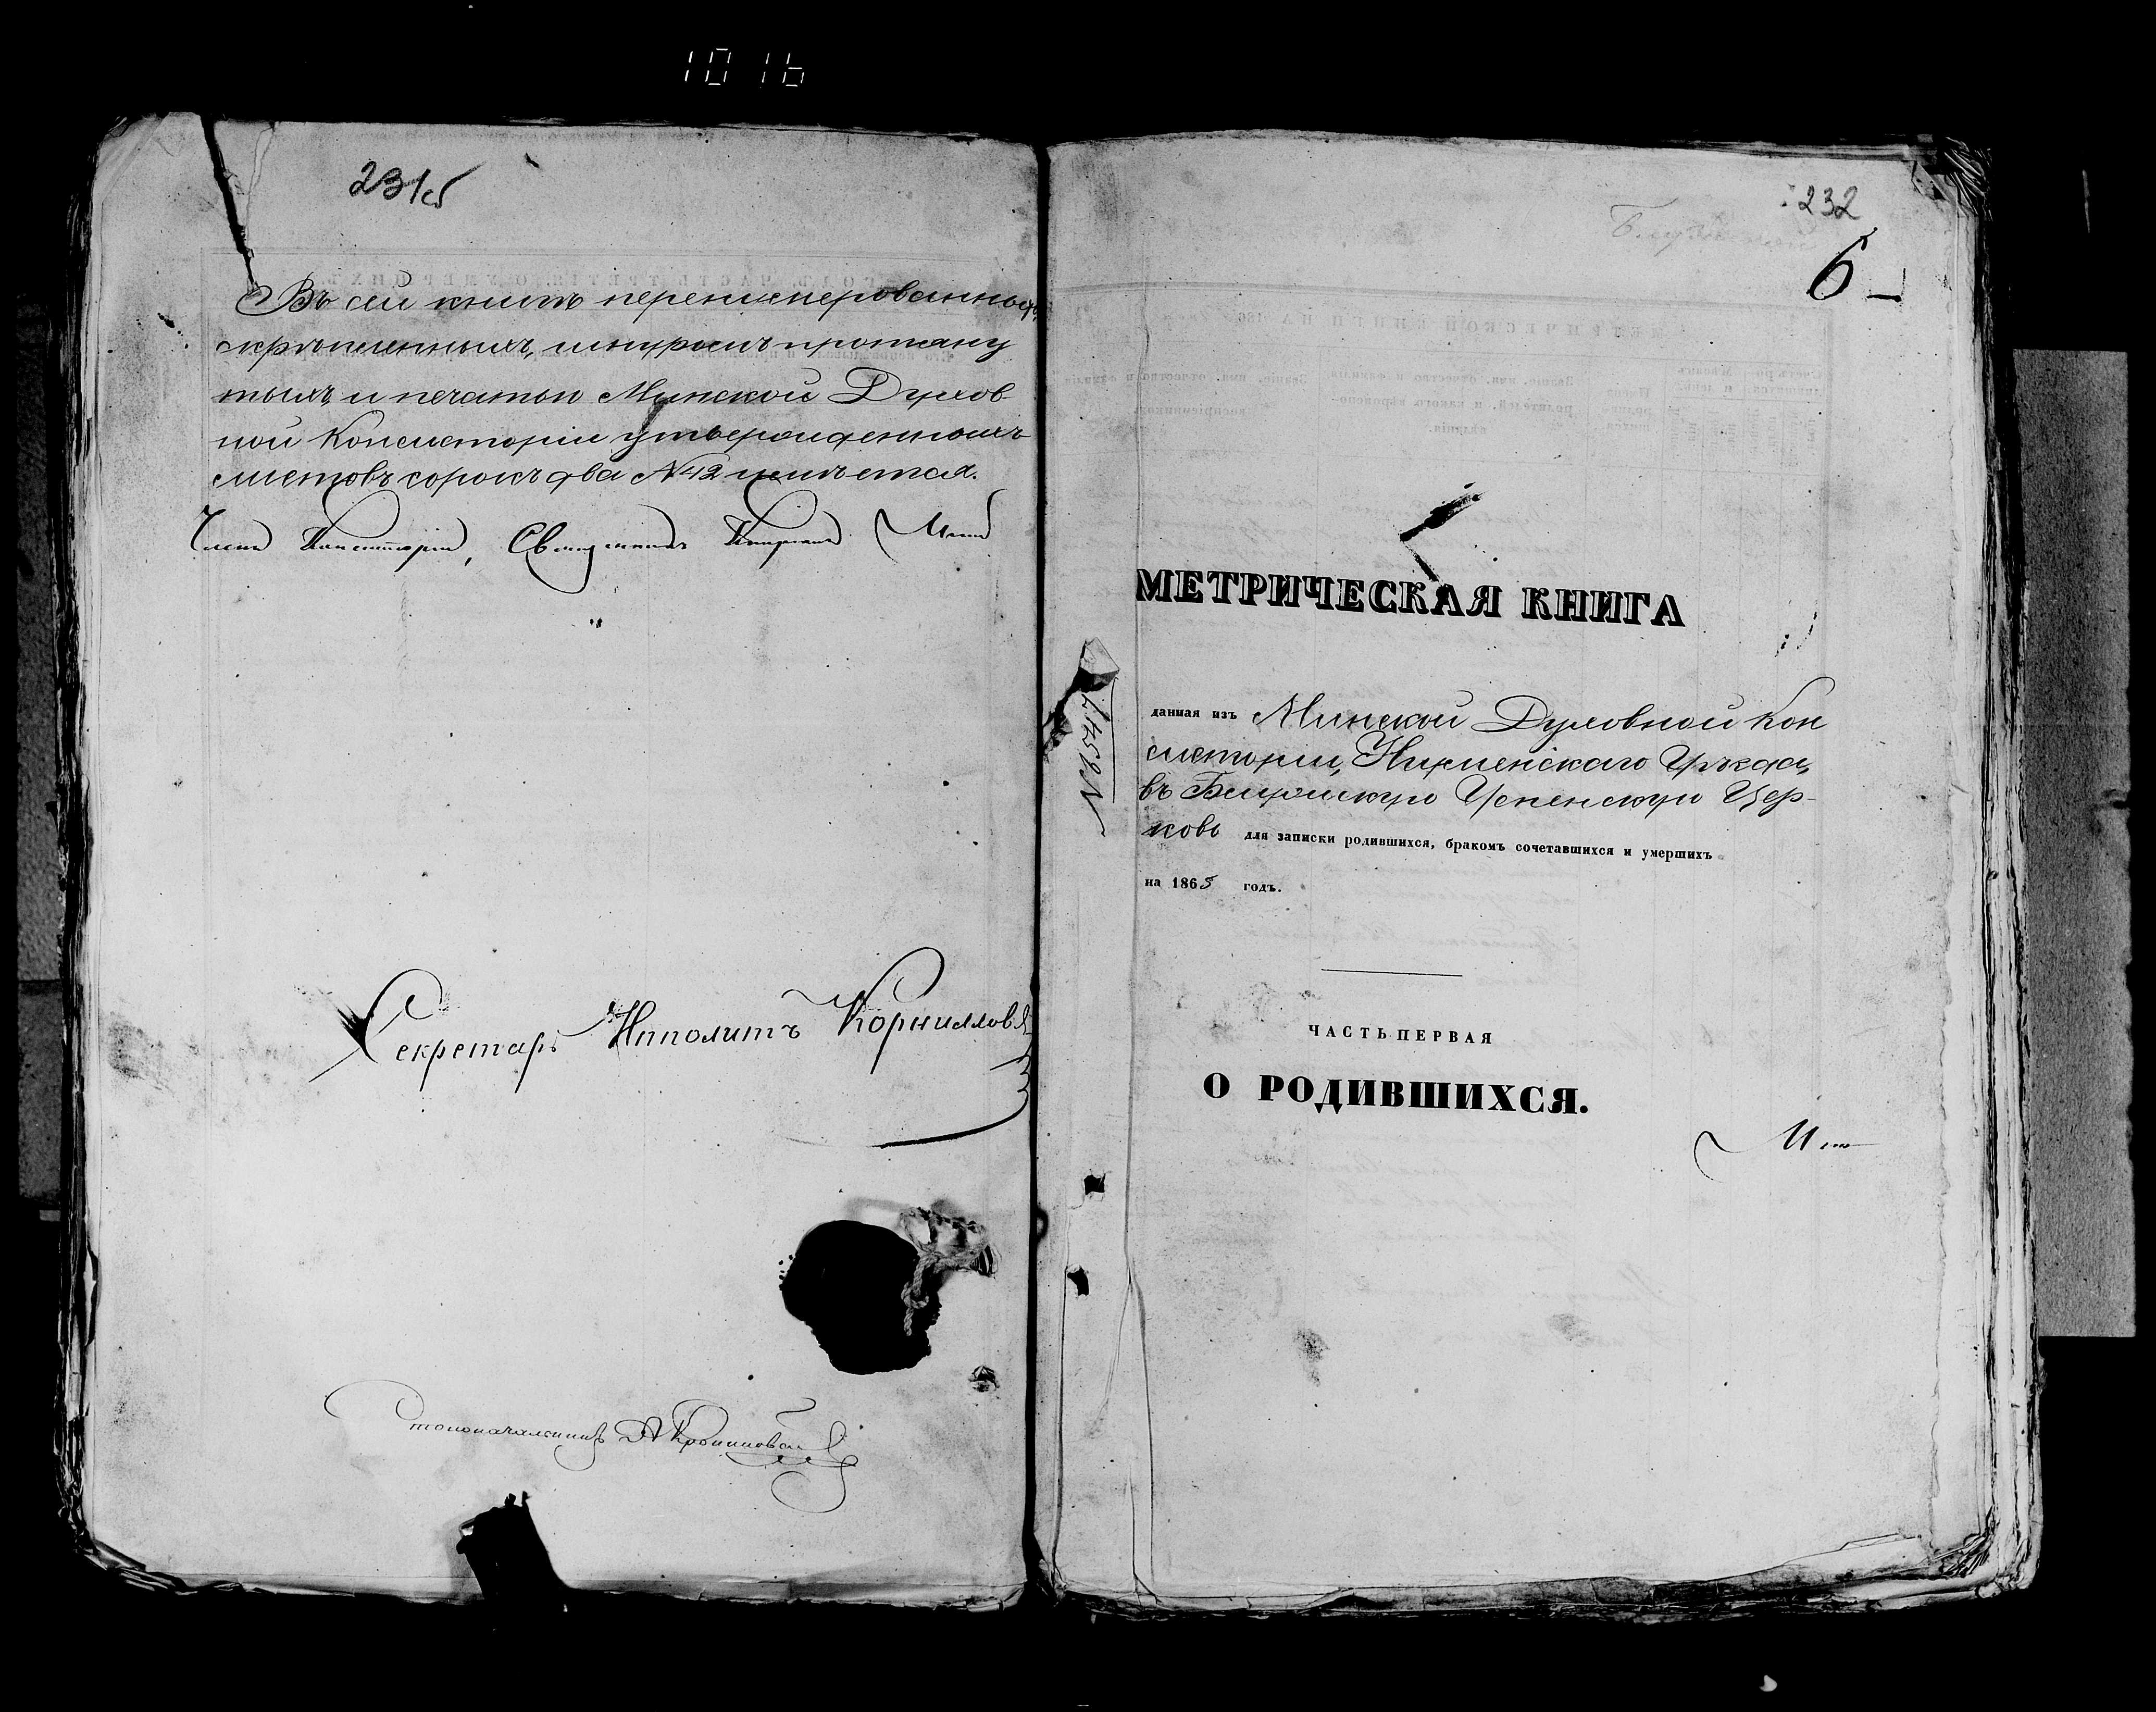 1016
231об
Въ сей книгѣ перенумерованныхъ,
скрѣпленныхъ, шнуромъ протяну
тыхъ и печатью Минской Духов
ной Консисторіи утвержденныхъ
листовъ сорокъ два №42 имѣется.
Членъ Консисторіи, Священникъ
Секретарь Ипполитъ Корнилловъ
Столоначальникъ А
232
6
МЕТРИЧЕСКАЯ КНИГА
данная изъ Минской Духовной Кон
систоріи, Игуменскаго Уѣзда,
въ Успенскую Цер-
ковь для записки родившихся, бракомъ сочетавшихся и умершихъ
на 1865 годъ.
ЧАСТЬ ПЕРВАЯ
О РОДИВШИХСЯ.